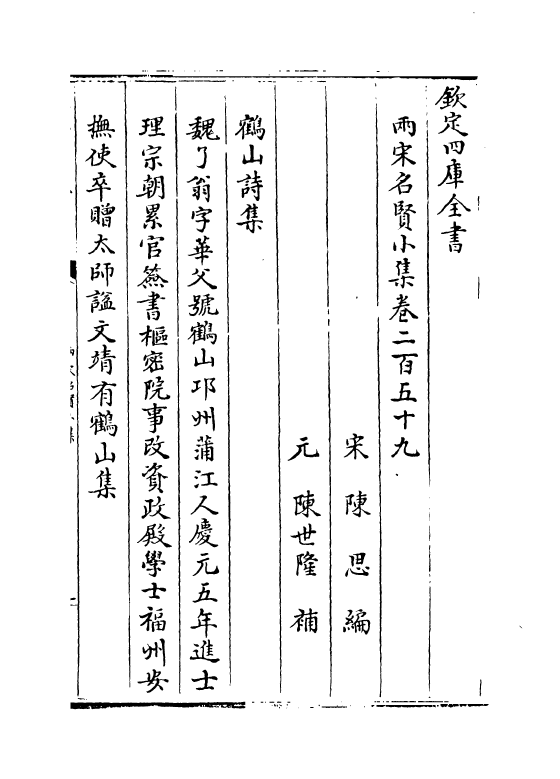 欽定四庫全書
兩宋名賢小集卷二百五十九
宋 陳思 編
元 陳世隆 補
鶴山詩集
魏了翁字華父號鶴山邛州蒲江人慶元五年進士
理宗朝累官簽書樞密院事改資政殿學士福州安
撫使卒贈太師謚文靖有鶴山集